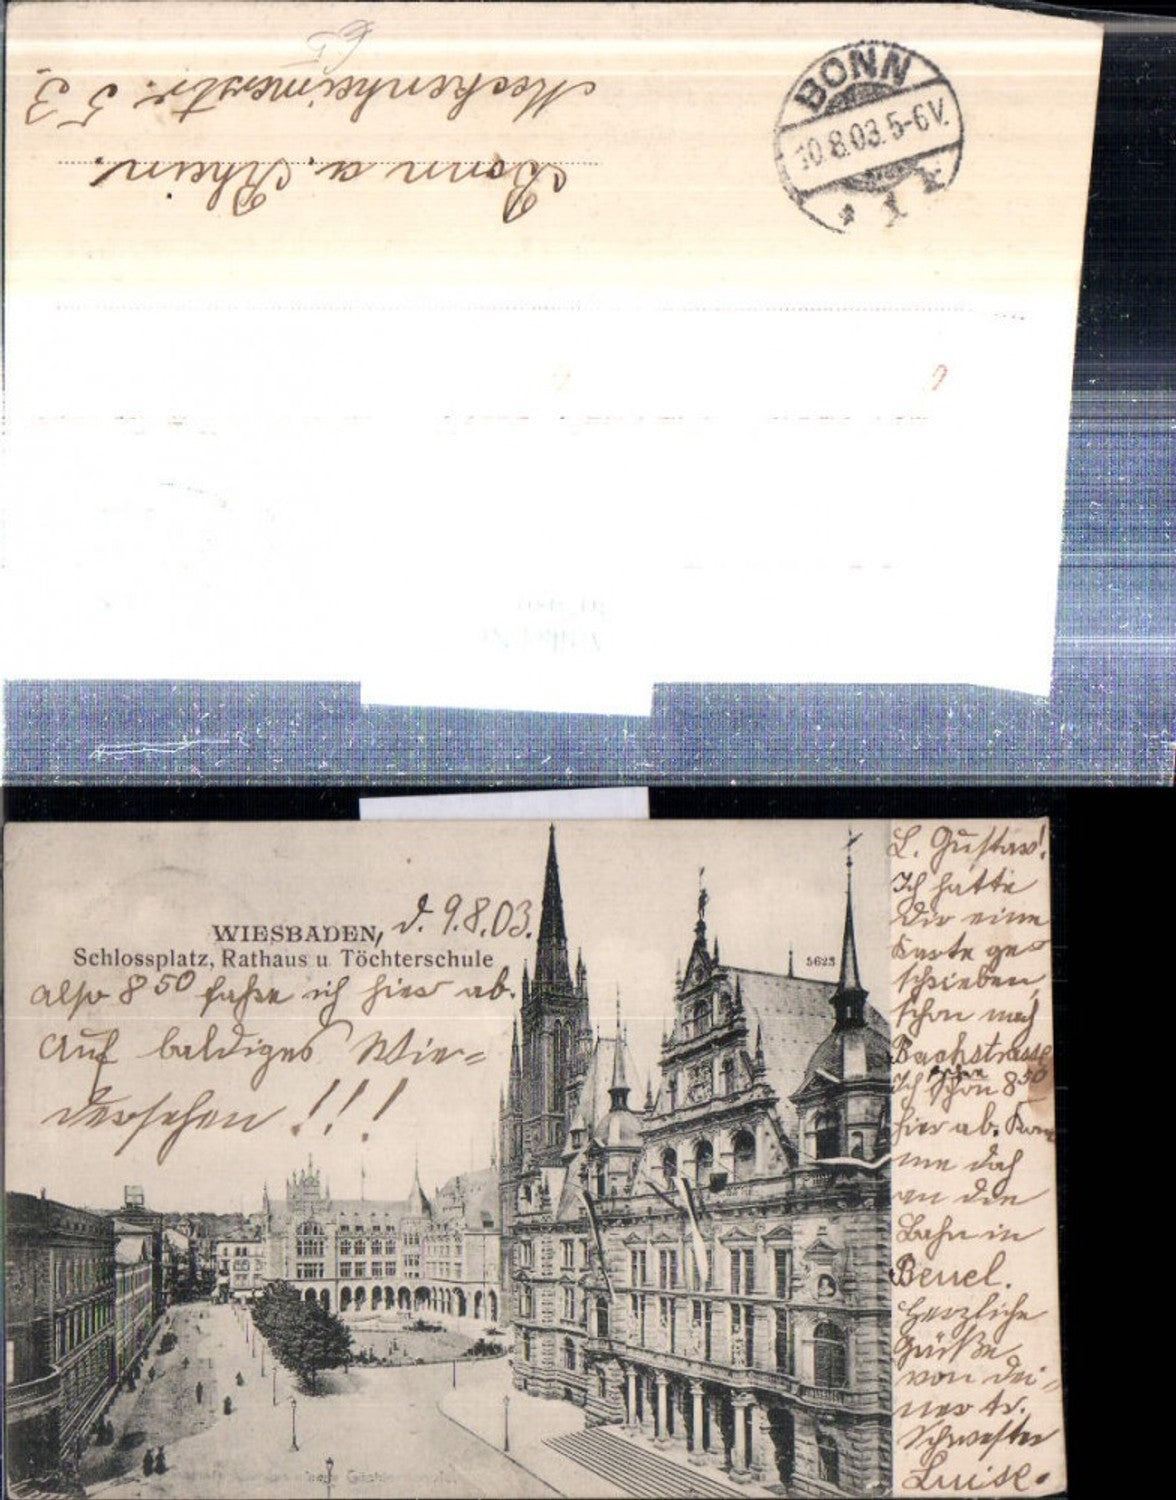 BONN
10.8.03. 5-6V.
* 1 *
Bonn a. Rhein.
Meckenheimerstr. 53.
WIESBADEN, d. 9.8.03.
Schlossplatz, Rathaus u Töchterschule
5623
also 8 50 fahre ich hier ab.
Auf baldiges Wie=
dersehen!!!
L. Gustav!
Ich hatte
Dir eine
Karte ge=
schrieben,
schon nach
Bachstrasse
Ich fahre schon 8 50
hier ab. Kom
me doch
an die
Bahn in
Beuel.
Herzliche
Grüße
von Dei=
ner tr.
Schwester
Luise.